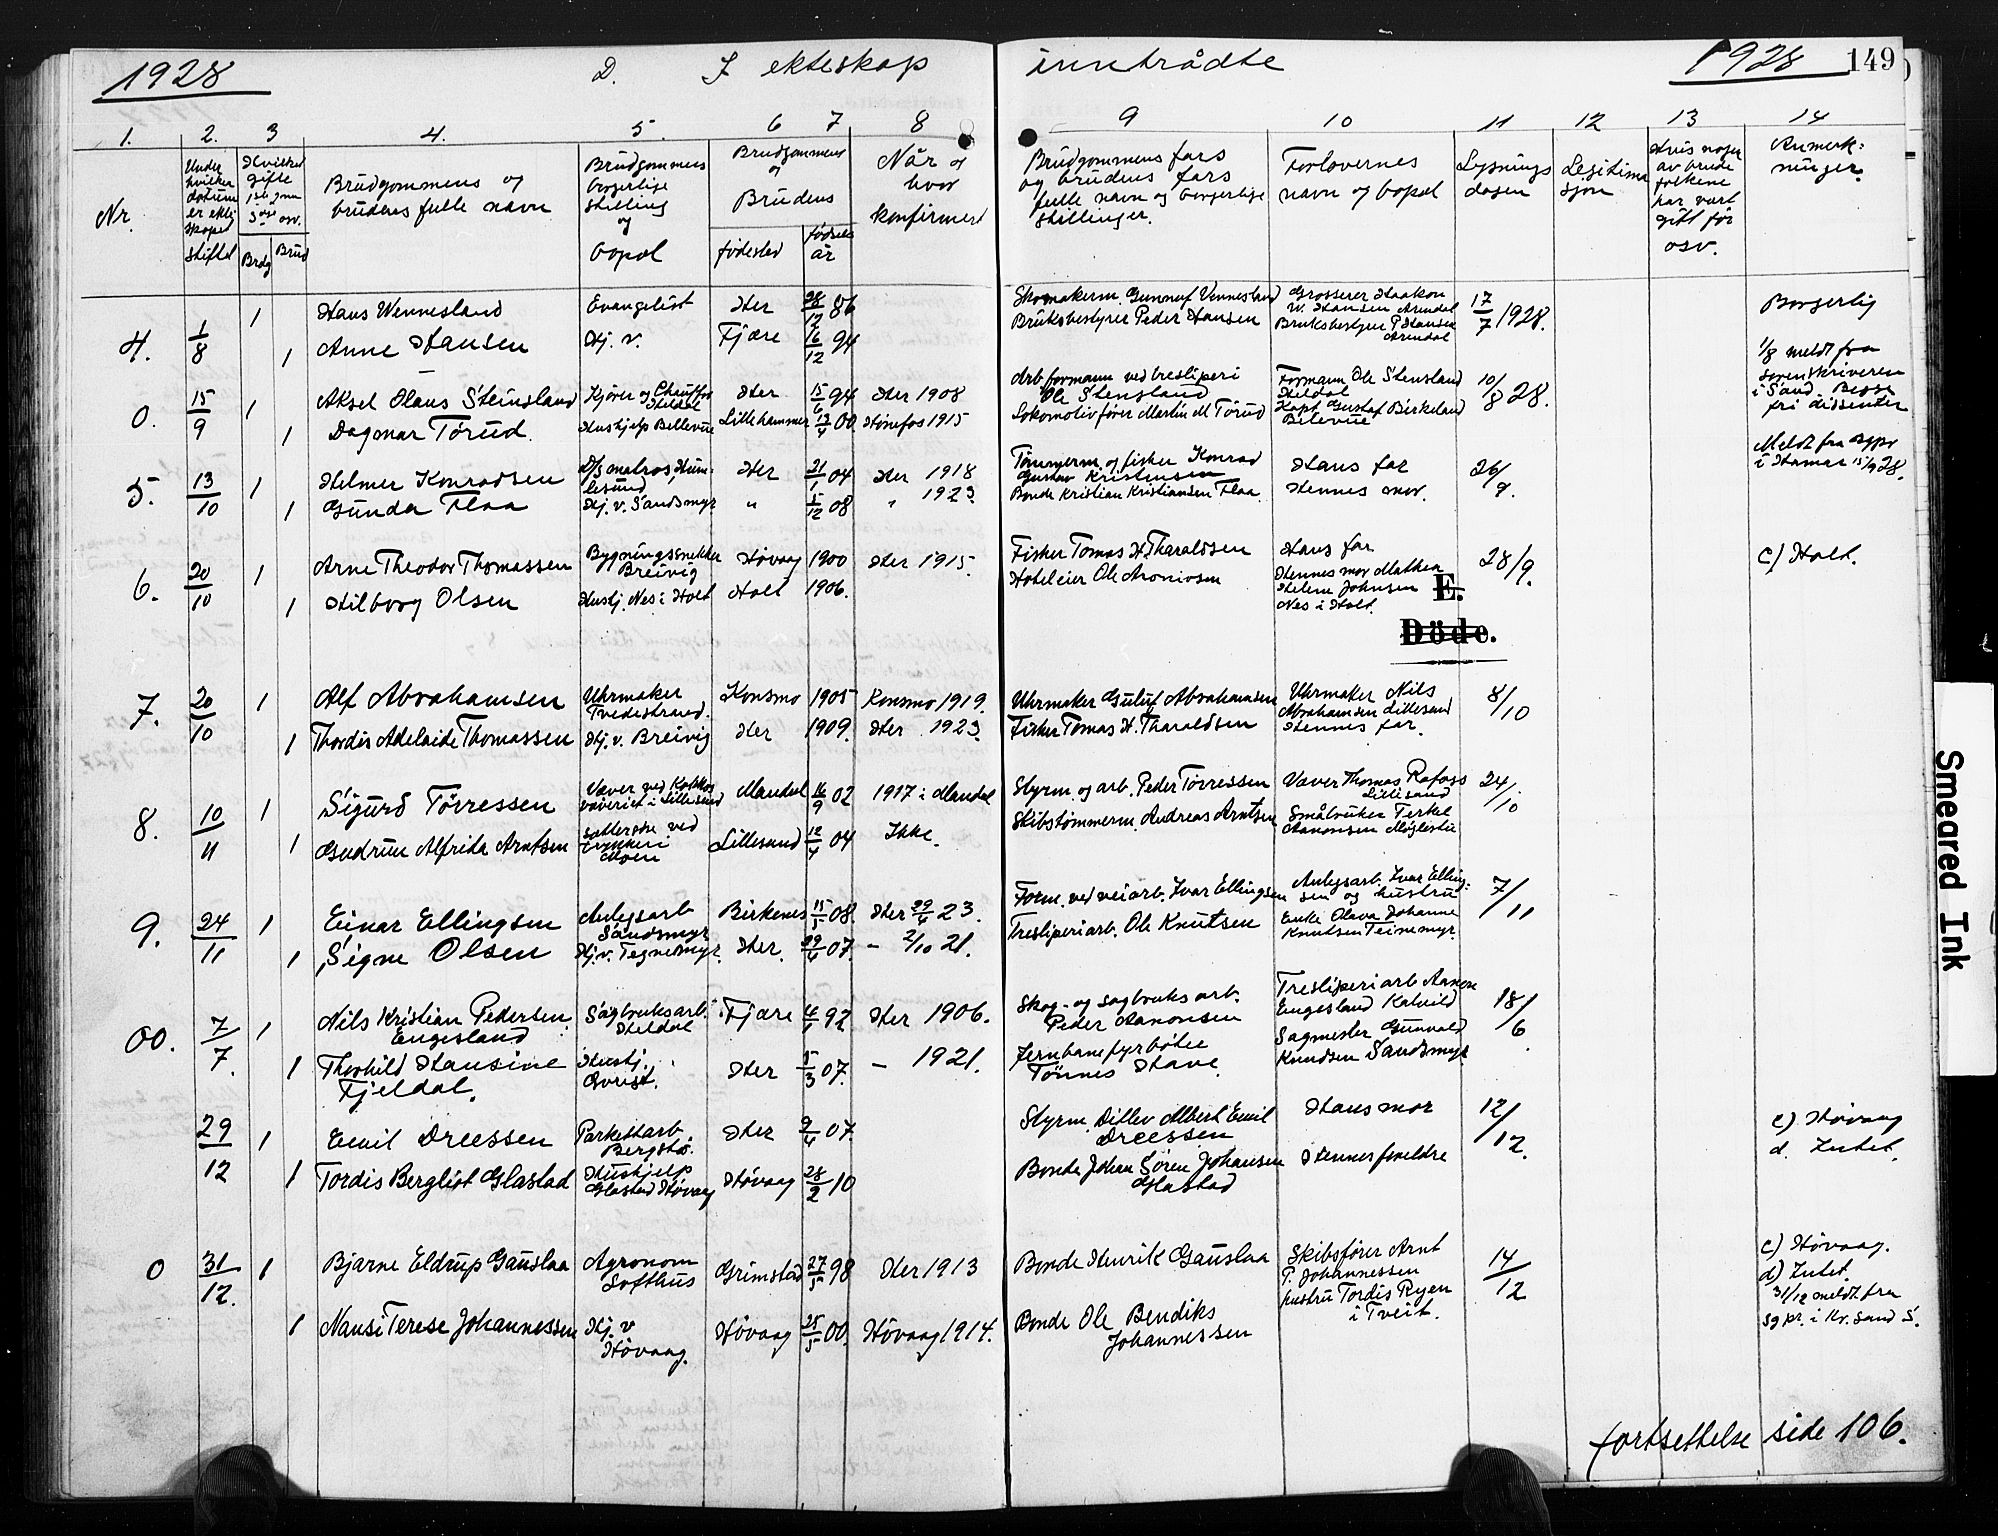 1928 D. I ekteskap inntrådte 1928 149
1. 2. 3 4. 5. 6 7 8 9 10 11 12 13 14
Nr.
Under hvilken datum er ekteskapet stiftet
Hvilket gifte 1ste 2nnen 3dje osv.
Brdg Brud
Brudgommens og
brudens fulle navn
Brudgommens
borgerlige
stilling
og
bopæl
Brudgommens
og
Brudens
fødested
fødsels
år
Når og
hvor
konfirmert
Brudgommens fars
og brudens fars
fulle navn og borgerlige
stillinger.
Forlovernes
navn og bopæl
Lysnings
dagen
Legitima
sjon
Hvis nogen
av brude
folkene
har vært
gift før
osv.
Anmerk:
ninger.
4. 1/8 1 Hans Wennesland Evangelist Her 28/12 86
Skomakerm. Gunnuf Vennesland Grosserer Haakon W. Hansen Arendal 17/7 1928. Borgerlig
1 Anne Hansen Hj. v. Fjære 16/12 94
Bruksbestyrer Peder Hansen Bruksbestyrer P. Hansen Arendal
1/8 meldt fra
sorenskriveren
i Sand. Begge
fri dissenter
0. 15/9 1 Aksel Olaus Steinsland Kjører og Chauffør Heldal Her 15/6 94 Her 1908
Arb.formann ved tresliperi Ole Stensland Formann Ole Stensland Heldal 10/8 28.
1 Dagmar Tørud. Hushjelp Bellevue Lillehammer 13/4 00 Hønefos 1915
Lokomotivfører Martin M Tørud Kapt. Gustaf Birkeland Bellevue
Meldt fra sgpr
i Hamar 15/9 28.
5. 13/10 1 Helmer Konradsen D/s matros, Humlesund Her 21/1 04 Her 1918
Tømmerm. og fisker Konrad Gustav Kristensen Hans far 26/9.
1 Gunda Flaa Hj. v. Sandsmyr " 5/12 08 " 1923.
Bonde Kristian Kristiansen Flaa. Hennes mor.
6. 20/10 1 Arne Theodor Thomassen Bygningssnekker Breivig Høvaag 1900 Her 1915.
Fisker Tomas H. Tharaldsen Hans far 28/9. c) Holt.
1 Hilborg Olsen Hushj. Nes i Holt Holt 1906.
Hoteleier Ole Aroniosen Hennes mor Mathea Helene Johnsen Nes i Holt.
E.
Döde.
7. 20/10 1 Alf Abrahamsen Uhrmaker Tvedestrand. Konsmo 1905 Konsmo 1919.
Uhrmaker Guluf Abrahamsen Uhrmaker Nils Abrahamsen Lillesand 8/10
1 Thordis Adelaide Thomassen Hj. v. Breivig Her 1909. Her 1923.
Fisker Tomas H. Tharaldsen Hennes far.
8. 10/11 1 Sigurd Tørressen Væver ved Kokkos væveriet i Lillesand Mandal 16/9 02 1917 i Mandal
Styrm. og arb. Peder Tørressen Væver Thomas Rafoss Lillesand 24/10
1 Gudrun Alfrida Arntsen sætterske ved trykkeri Moen Lillesand 12/4 04 Ikke.
Skibstømmerm. Andreas Arntsen Småbruker Terkel Aanonsen Møglestu
9. 24/11 1 Einar Ellingsen Anlegsarb Sandsmyr Birkenes 15/5 08. Her 29/4 23.
Form. ved veiarb. Ivar Ellingsen Anlegsarb. Ivar Ellingsen og hustru 7/11
1 Signe Olsen Hj. v. Tegnemyr. Her. 29/6 07. – 2/10 21.
Tresliperiarb. Ole Knutsen Enke Olava Johanne Knutsen Teinemyr.
00. 7/7. 1 Nils Kristian Pedersen Engesland Sagbruksarb. Heldal Fjære 4/1 92 Her 1906.
Skog- og sagbruks arb. Peder Aanonsen Tresliperiarb Aanon Engesland Kalvild 18/6.
1 Thorhild Hansine Fjeldal. Hushj. Øvrigst. Her 5/3 07. – 1921.
Jernbanefyrbøter Tønnes Have. Sagmester Gunvald Knudsen Sandsmyr
29/12 1 Emil Dreessen Parkettarb. Bergstø. Her 9/4 07.
Styrm. Ditlev Albert Emil Dreessen Hans mor 12/12. c) Høvaag
d. Intet.
1 Tordis Bergliot Glastad Hushjelp Glastad Høvaag Høvaag 28/2 10
Bonde Johan Søren Johansen Glastad Hennes foreldre
0 31/12. 1 Bjarne Eldrup Gauslaa Agronom Softhus Grimstad 27/5 98 Her 1913
Bonde Henrik Gauslaa Skibsfører Arnt P. Johannessen 14/12 c) Høvaag.
d) Intet.
31/12 meldt fra
sgpr. i Kr.sand S.
1 Nansi Terese Johannessen Hj. v Høvaag. Høvaag 25/5 00. Høvaag 1914.
Bonde Ole Bendiks Johannessen hustru Tordis Ryen i Tveit.
fortsettelse side 106.
Smeared Ink